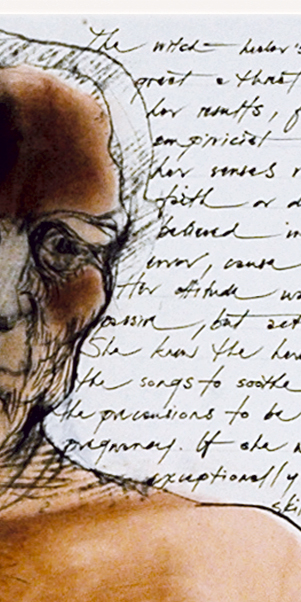 The witch-healer's
great a threat
her results, f
empiricist
her senses r
faith or d
believed in
error, cause
Her attitude wa
passive, but act
She knew the her
the songs to soothe
the precausions to be
pregnancy. If she w
exceptionally
skil